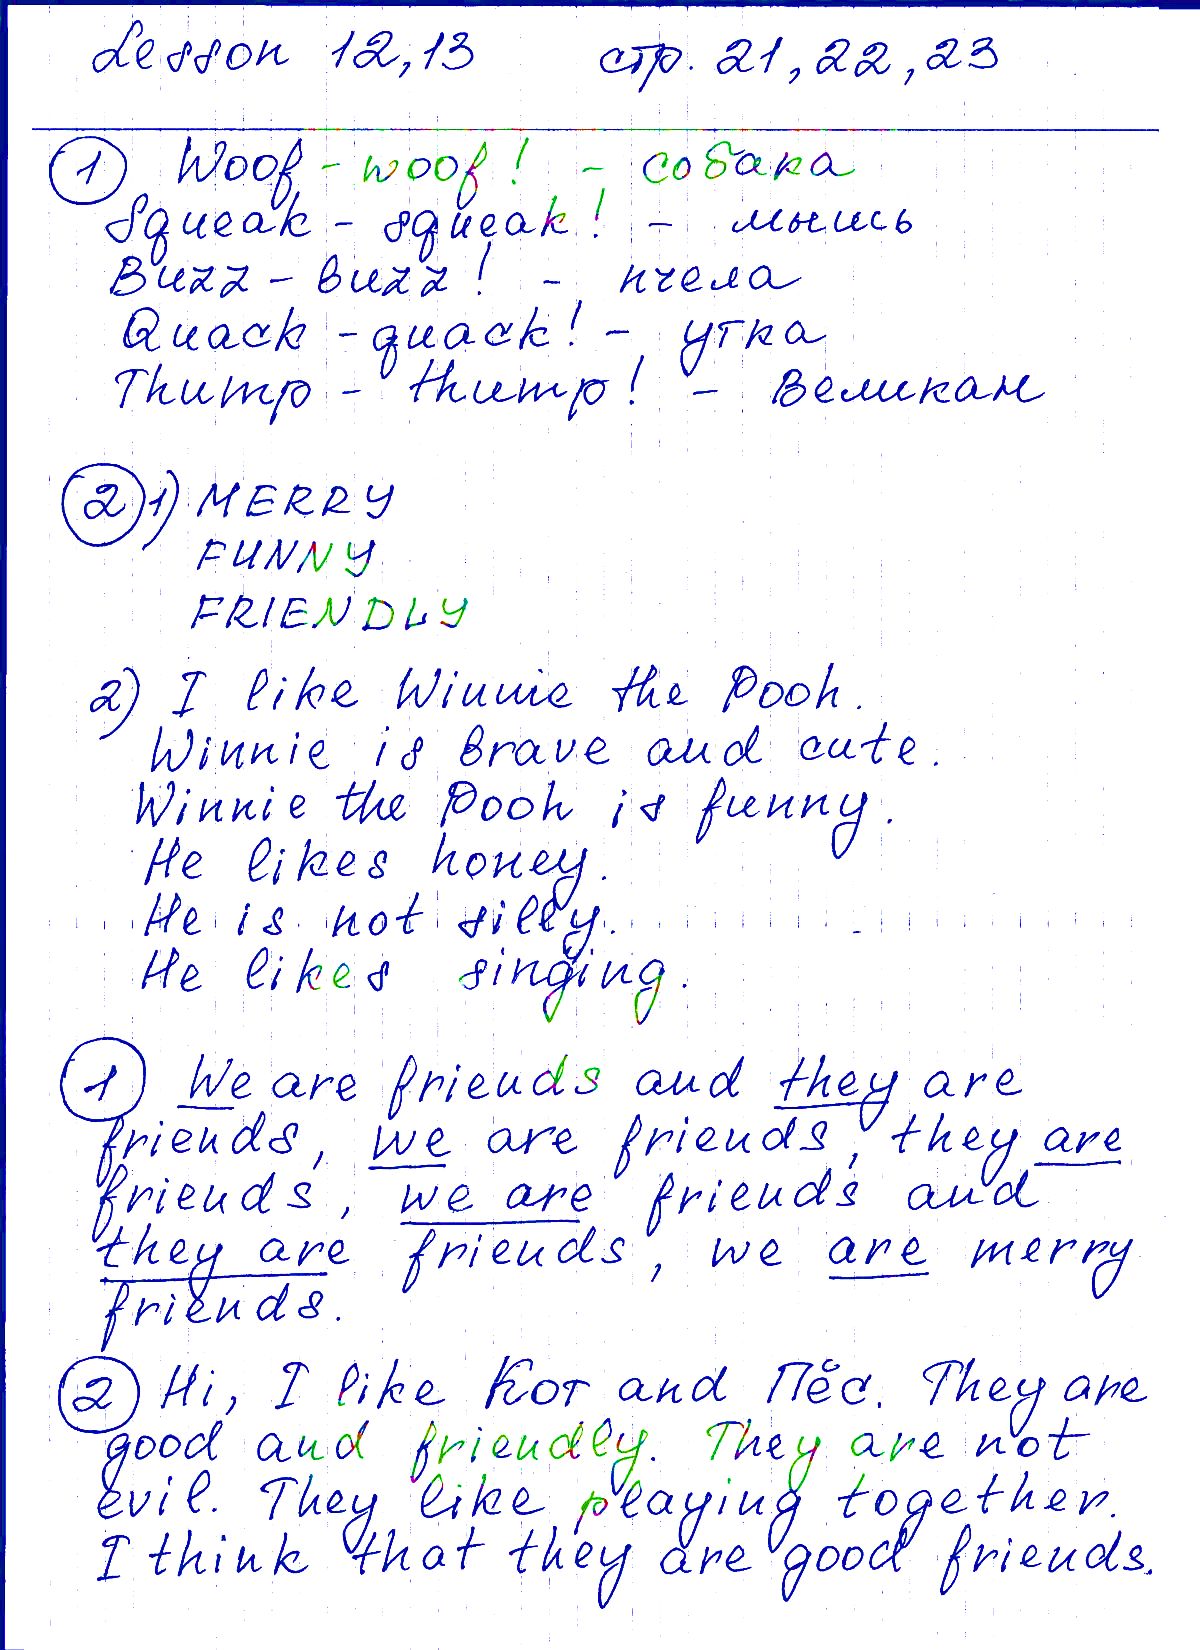 Lesson 12,13 стр. 21, 22, 23
1 Woof - woof! - собака
Squeak - squeak! - мышь
Buzz - buzz! - пчела
Quack - quack! - утка
Thump - thump! - Великан
2 1) MERRY
FUNNY
FRIENDLY
2) I like Winnie the Pooh.
Winnie is brave and cute.
Winnie the Pooh is funny.
He likes honey.
He is not silly.
He likes singing.
1 We are friends and they are
friends, we are friends, they are
friends, we are friends and
they are friends, we are merry
friends.
2 Hi, I like Кот and Пёс. They are
good and friendly. They are not
evil. They like playing together.
I think that they are good friends.